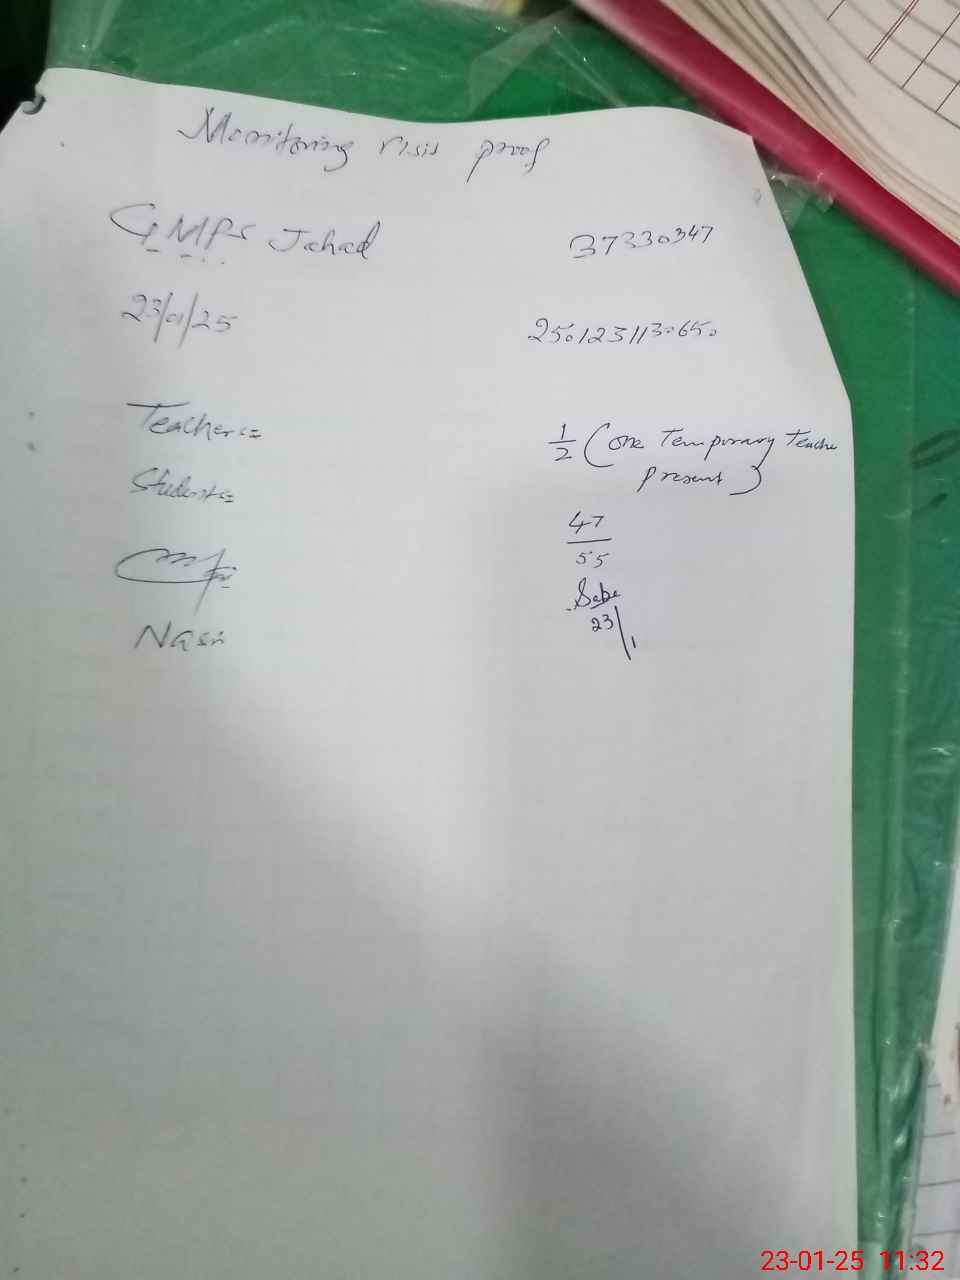 Monitoring visit proof
GMPS Jahad 37330347
23/01/25 2501231130650
Teachers= 1/2 (One Temporary Teache
present)
Students= 47/55
23/1
23-01-25 11:32